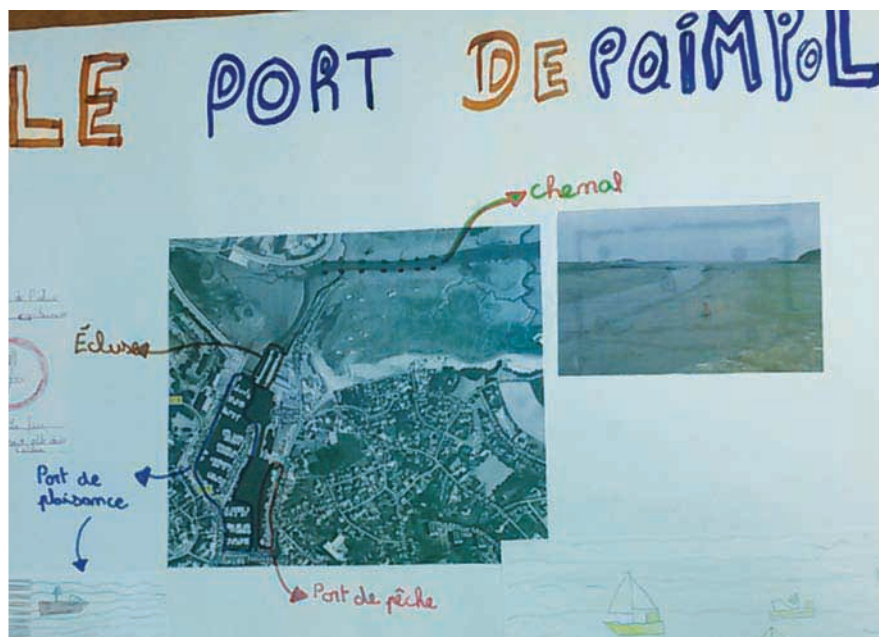 LE PORT DE PAIMPOL
chenal
Écluse
Port de
plaisance
Port de pêche